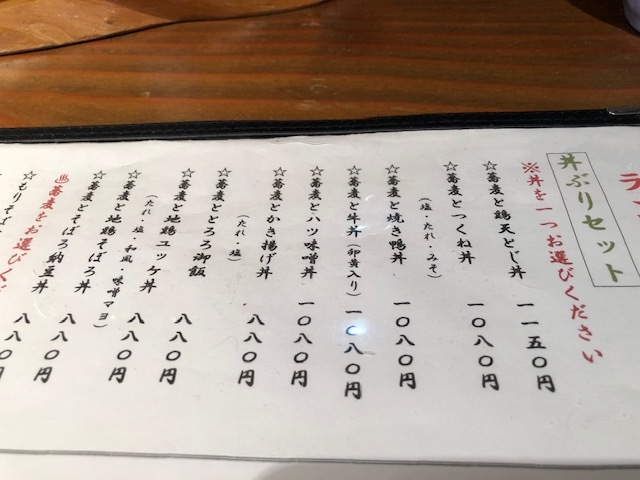 ラ
丼ぶりセット
※丼を一つお選びください
☆蕎麦と鶏天とじ丼 一一五〇円
☆蕎麦とつくね丼 一〇八〇円
(塩・たれ・みそ)
☆蕎麦と焼き鴨丼 一〇八〇円
☆蕎麦と牛丼(卵黄入り) 一〇八〇円
☆蕎麦とハツ味噌丼 一〇八〇円
☆蕎麦とかき揚げ丼 八八〇円
(たれ・塩)
☆蕎麦ととろろ御飯 八八〇円
☆蕎麦と地鶏ユッケ丼 八八〇円
(たれ・塩・和風・味噌マヨ)
☆蕎麦と地鶏そぼろ丼 八八〇円
☆蕎麦とそぼろ納豆丼 八八〇円
♨蕎麦をお選びくだ
☆もりそば